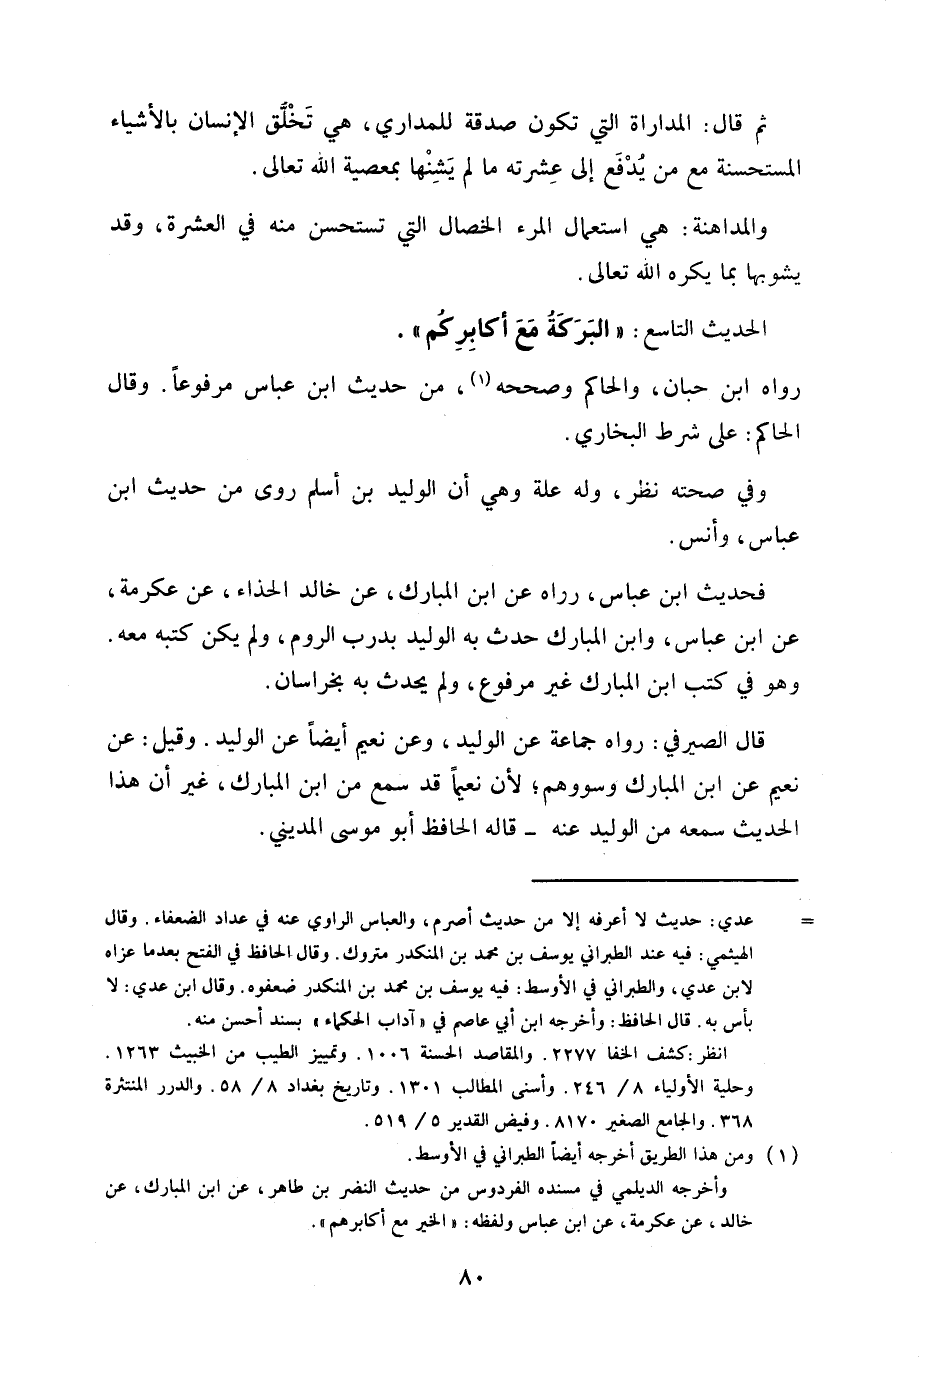 ثم قال: المداراة التي تكون صدقة للمداري، هي تَخَلُّق الإنسان بالأشياء
المستحسنة مع من يُدْفَع إلى عِشرته ما لم يَشِنْها بمعصية الله تعالى.
والمداهنة: هي استعمال المرء الخصال التي تستحسن منه في العشرة، وقد
يشوبها بما يكره الله تعالى.
الحديث التاسع: «البَرَكَةُ مَعَ أكابِرِكُم».
رواه ابن حبان، والحاكم وصححه(١)، من حديث ابن عباس مرفوعاً. وقال
الحاكم: على شرط البخاري.
وفي صحته نظر، وله علة وهي أن الوليد بن أسلم روى من حديث ابن
عباس، وأنس.
فحديث ابن عباس، رراه عن ابن المبارك، عن خالد الحذاء، عن عكرمة،
عن ابن عباس، وابن المبارك حدث به الوليد بدرب الروم، ولم يكن كتبه معه.
وهو في كتب ابن المبارك غير مرفوع، ولم يحدث به بخراسان.
قال الصيرفي: رواه جماعة عن الوليد، وعن نعيم أيضاً عن الوليد. وقيل: عن
نعيم عن ابن المبارك وسووهم؛ لأن نعيماً قد سمع من ابن المبارك، غير أن هذا
الحديث سمعه من الوليد عنه - قاله الحافظ أبو موسى المديني.
= عدي: حديث لا أعرفه إلا من حديث أصرم، والعباس الراوي عنه في عداد الضعفاء. وقال
الهيثمي: فيه عند الطبراني يوسف بن محمد بن المنكدر متروك. وقال الحافظ في الفتح بعدما عزاه
لابن عدي، والطبراني في الأوسط: فيه يوسف بن محمد بن المنكدر ضعفوه. وقال ابن عدي: لا
بأس به. قال الحافظ: وأخرجه ابن أبي عاصم في «آداب الحكماء» بسند أحسن منه.
انظر: كشف الخفا ٢٢٧٧. والمقاصد الحسنة ١٠٠٦. وتمييز الطيب من الخبيث ١٢٦٣.
وحلية الأولياء ٨/ ٢٤٦. وأسنى المطالب ١٣٠١. وتاريخ بغداد ٨/ ٥٨. والدرر المنتثرة
٣٦٨. والجامع الصغير ٨١٧٠. وفيض القدير ٥/ ٥١٩.
(١) ومن هذا الطريق أخرجه أيضاً الطبراني في الأوسط.
وأخرجه الديلمي في مسنده الفردوس من حديث النضر بن طاهر، عن ابن المبارك، عن
خالد، عن عكرمة، عن ابن عباس ولفظه: «الخير مع أكابرهم».
٨٠